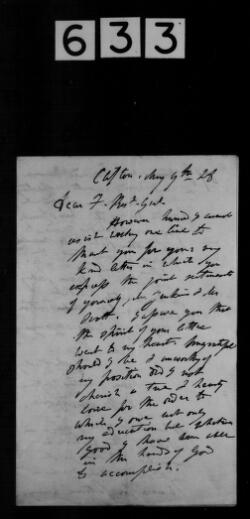 633
Clifton, May 9th 28
Dear F. Rect. Genl.
However hurried I cannot
resist writing one line to
thank you for your very
kind letter in which you
express the joint sentiments
of yourself, Mr. Jenkins & Mr.
Scott. I assure you that
the spirit of your letter
went to my heart. Ungrateful
should I be & unworthy of
my position did I not
cherish a true & hearty
love for the order to
which I owe not only
my education but whatever
good I have been able
in the hands of God
to accomplish.